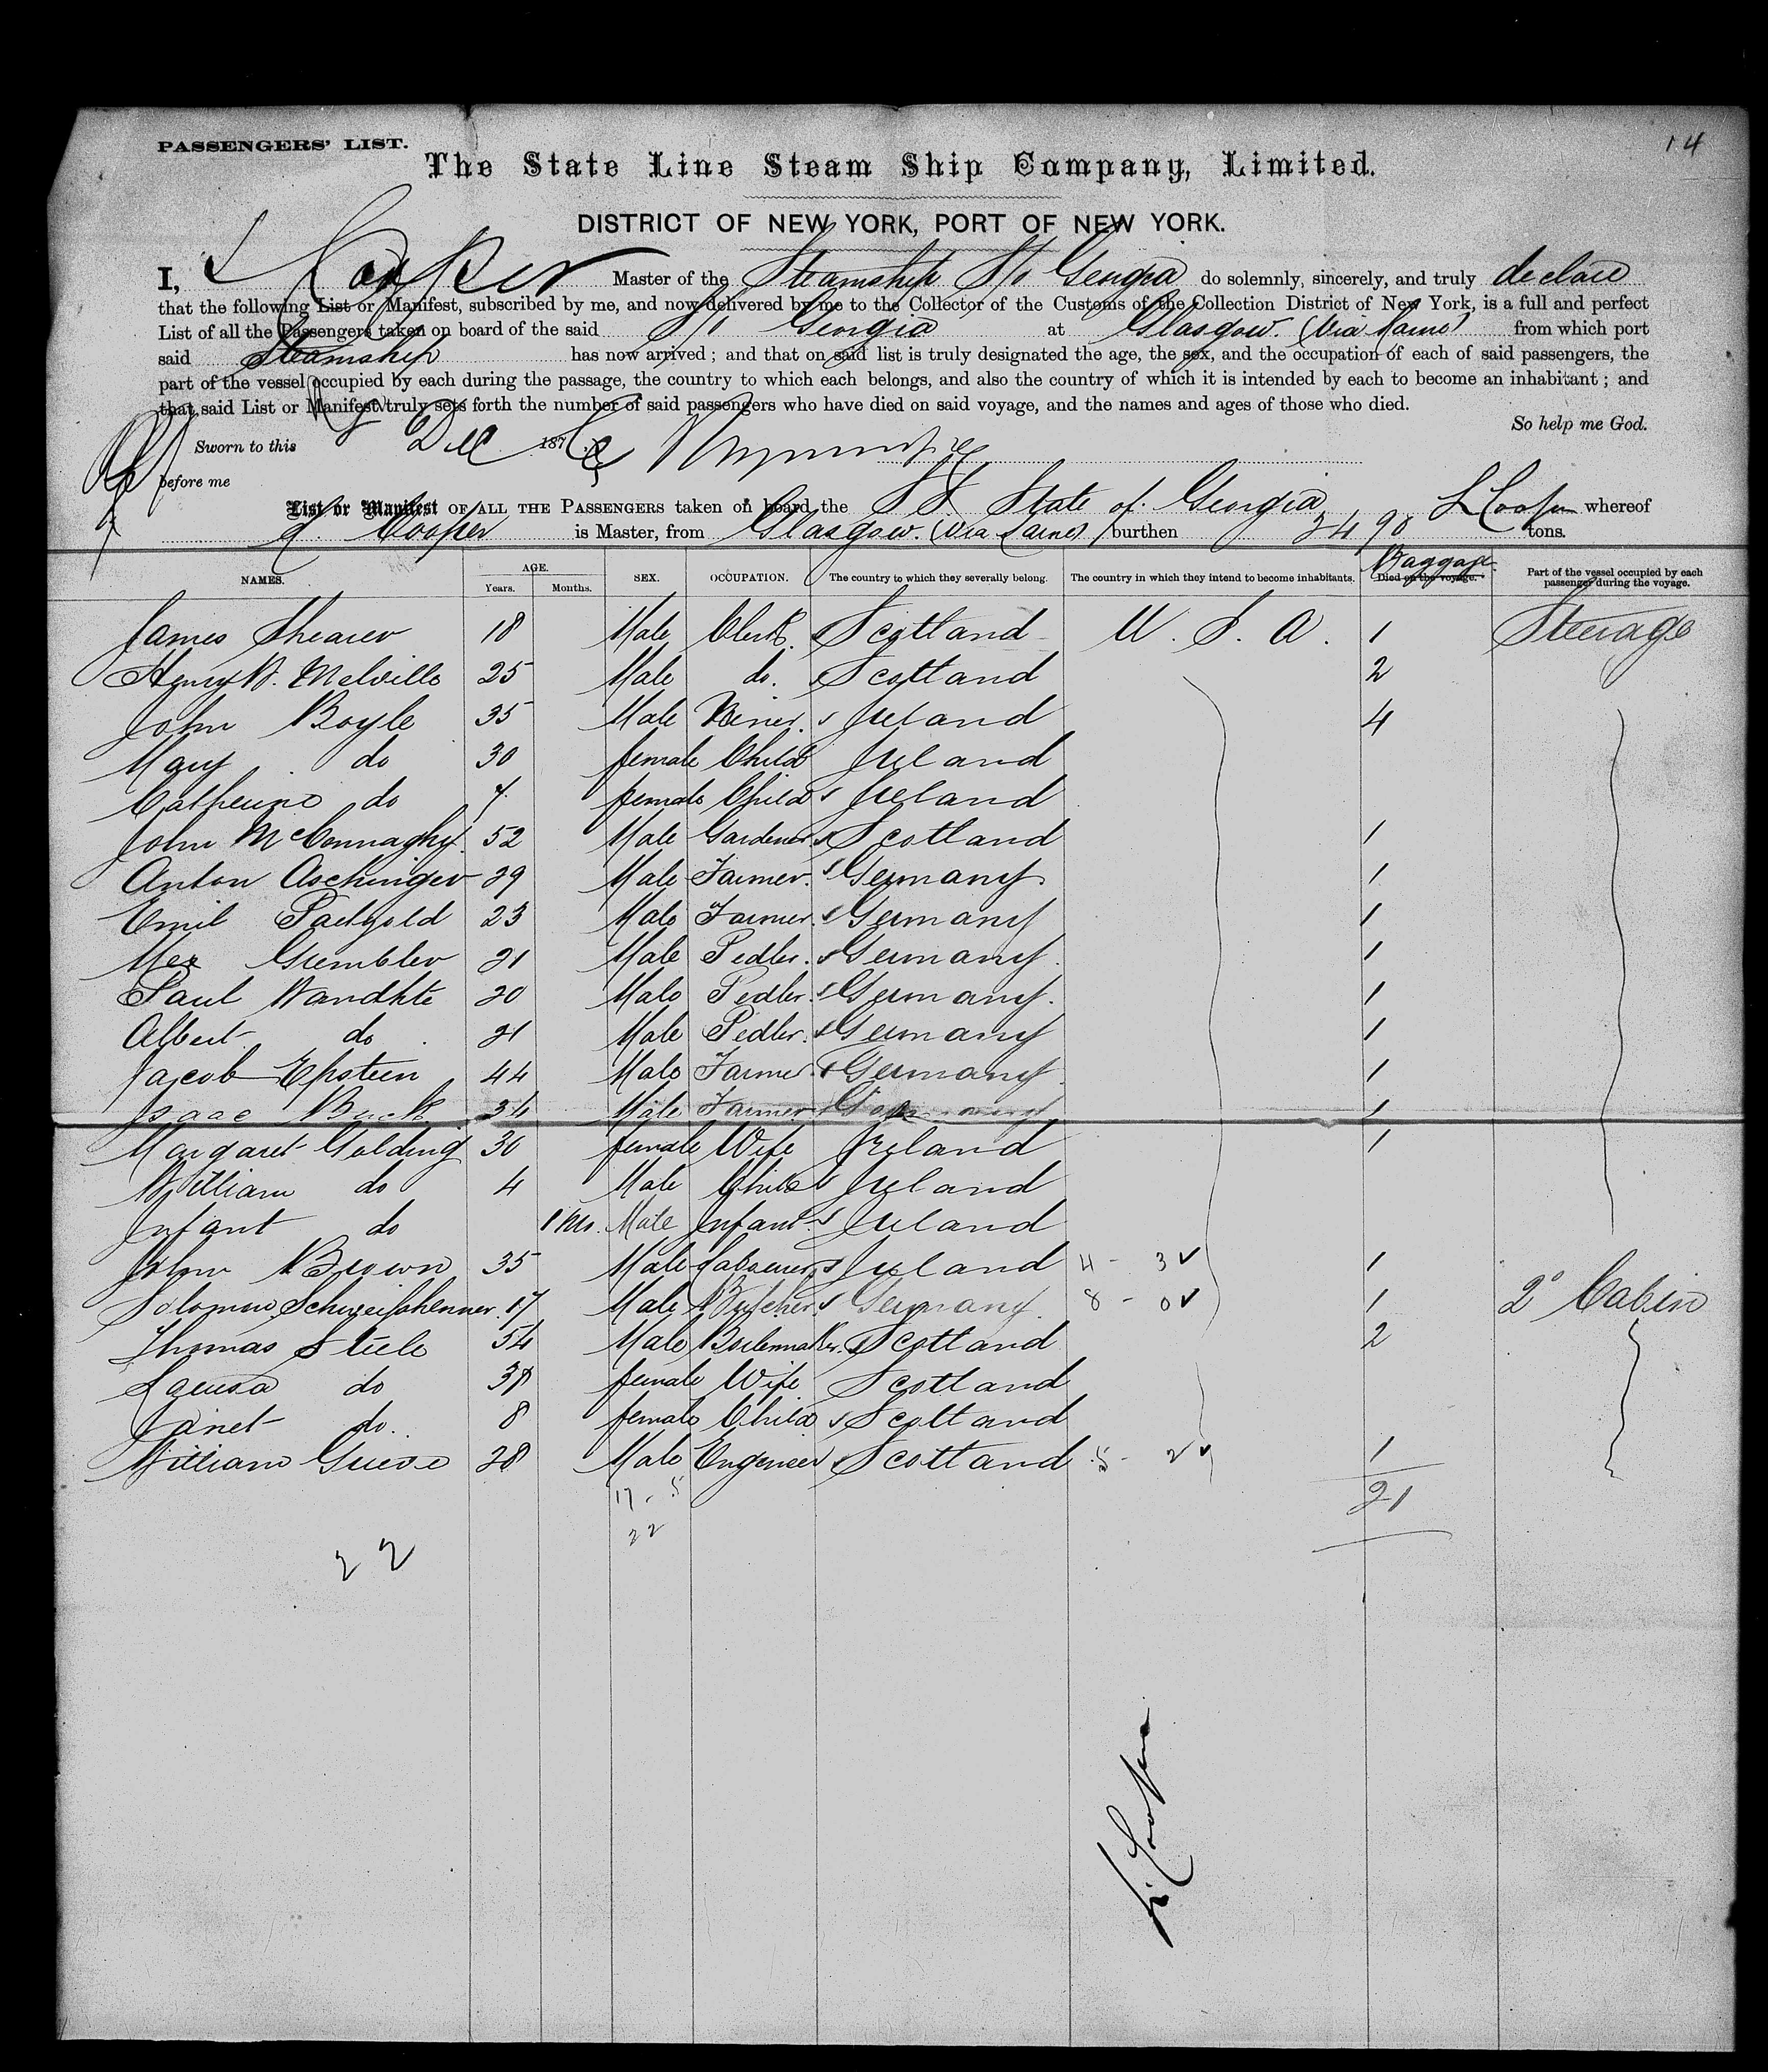 14
PASSENGERS' LIST.
The State Line Steam Ship Company, Limited.
DISTRICT OF NEW YORK, PORT OF NEW YORK.
I, L Cooper Master of the Steamship St. Georgia do solemnly, sincerely, and truly declare
that the following List or Manifest, subscribed by me, and now delivered by me to the Collector of the Customs of the Collection District of New York, is a full and perfect
List of all the Passengers taken on board of the said St. Georgia at Glasgow. (Via Larne) from which port
said Steamship has now arrived; and that on said list is truly designated the age, the sex, and the occupation of each of said passengers, the
part of the vessel occupied by each during the passage, the country to which each belongs, and also the country of which it is intended by each to become an inhabitant; and
that said List or Manifest truly sets forth the number of said passengers who have died on said voyage, and the names and ages of those who died.
So help me God.
Sworn to this Dec 187
before me
List or Manifest OF ALL THE PASSENGERS taken on board the SS. State of Georgia L Cooper whereof
L. Cooper is Master, from Glasgow. (Via Larne) burthen 2490 tons.
NAMES. AGE. Years. Months. SEX. OCCUPATION. The country to which they severally belong. The country in which they intend to become inhabitants. Baggage. Died on the voyage. Part of the vessel occupied by each passenger during the voyage.
James Shearer 18 Male Clerk. Scotland U. S. A. 1 Steerage
Henry W. Melville 25 Male do. Scotland 2
John Boyle 35 Male Miner. Ireland 4
Mary do 30 female Child Ireland
Catherine do 7 female Child Ireland
John McConnaghy 52 Male Gardener Scotland 1
Anton Aschinger 29 Male Farmer. Germany. 1
Emil 23 Male Farmer. Germany 1
Max Grembler 21 Male Pedler. Germany. 1
Paul Wandhte 20 Male Pedler. Germany. 1
Albert do 21 Male Pedler. Germany 1
Jacob Epstein 44 Male Farmer. Germany. 1
Isaac Buck 34 Male Farmer Germany 1
Margaret Golding 30 female Wife Ireland 1
William do 4 Male Child Ireland
Infant do 1 Mo. Male Infant. Ireland
John Brown 35 Male Labourer Ireland 4 - 3 ✓ 1
Solomon 17 Male Butcher Germany. 8 - 0 ✓ 1 2° Cabin
Thomas Steele 54 Male Boilermaker. Scotland 2
do 38 female Wife Scotland
Janet do. 8 female Child Scotland
William Grieve 28 Male Engineer Scotland 5 - 2 ✓ 1
17 - 5 21
22
22
L. Cooper